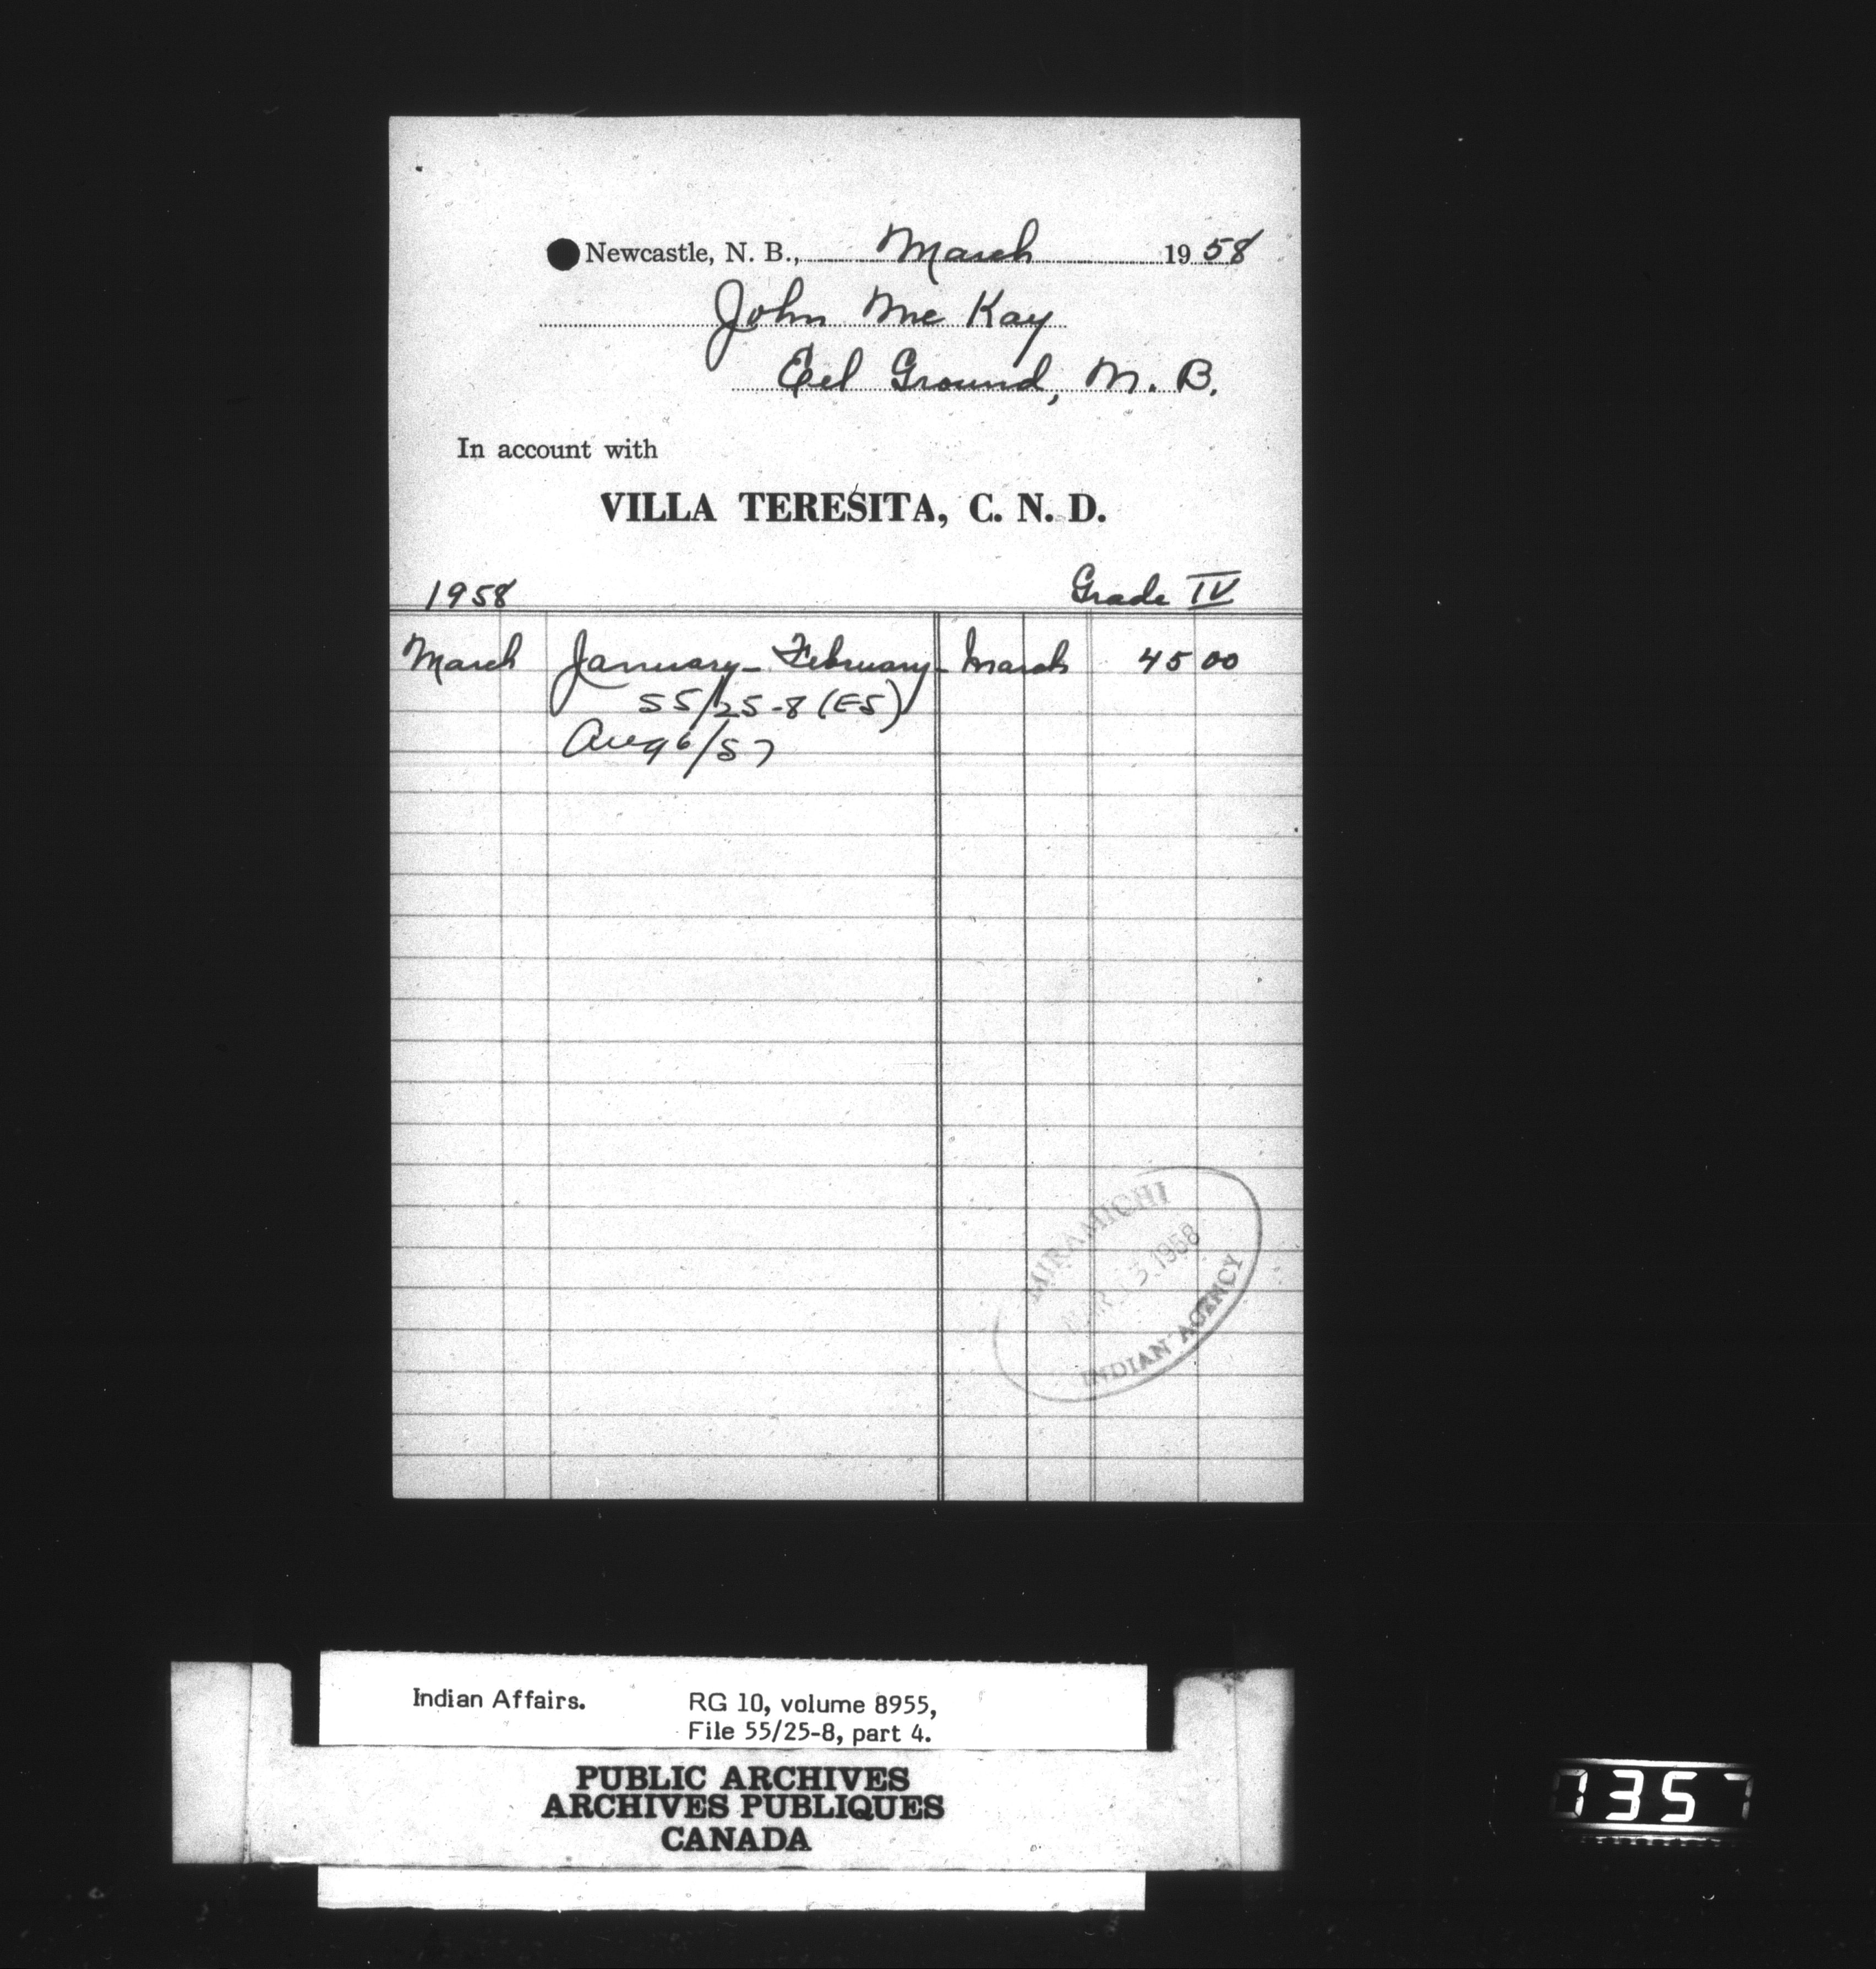 Newcastle, N. B., March 1958
John McKay
Eel Ground, N. B.
In account with
VILLA TERESITA, C. N. D.
1958 Grade IV
March January - February - March 45 00
55/25-8 (ES)
Aug 6/57
MIRAMICHI
MAR 13 1958
INDIAN AGENCY
Indian Affairs. RG 10, volume 8955,
File 55/25-8, part 4.
PUBLIC ARCHIVES
ARCHIVES PUBLIQUES
CANADA
1357